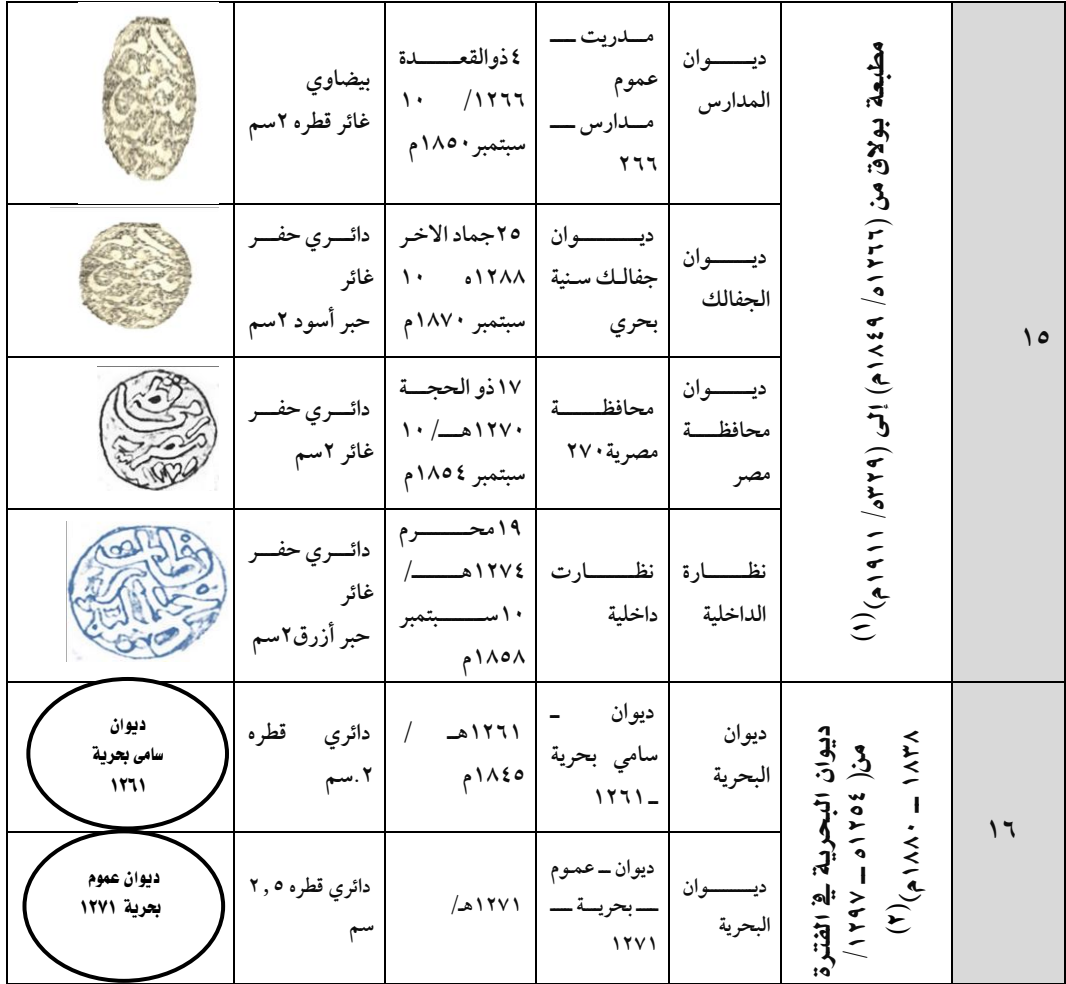 ١٥
مطبعة بولاق من (١٢٦٦ه/ ١٨٤٩م) إلى (٣٢٩ه/ ١٩١١م)(١)
ديوان
المدارس
مدريت ـــ
عموم
مدارس ـــ
٢٦٦
٤ ذوالقعدة
١٢٦٦/ ١٠
سبتمبر ١٨٥٠م
بيضاوي
غائر قطره ٢سم
ديوان
الجفالك
ديوان
جفالك سنية
بحري
٢٥جماد الاخر
١٢٨٨ه ١٠
سبتمبر ١٨٧٠م
دائري حفر
غائر
حبر أسود ٢سم
ديوان
محافظة
مصر
محافظة
مصرية٢٧٠
١٧ذو الحجة
١٢٧٠هـ/ ١٠
سبتمبر ١٨٥٤م
دائري حفر
غائر ٢سم
نظارة
الداخلية
نظارت
داخلية
١٩محرم
١٢٧٤هـ/
١٠سبتمبر
١٨٥٨م
دائري حفر
غائر
حبر أزرق٢سم
١٦
ديوان البحرية في الفترة
من( ١٢٥٤ه ـــ ١٢٩٧/
١٨٣٨ ـــ ١٨٨٠م)(٢)
ديوان
البحرية
ديوان ـ
سامي بحرية
ـ١٢٦١
١٢٦١هـ /
١٨٤٥م
دائري قطره
٢.سم
ديوان
سامى بحرية
١٢٦١
ديوان
البحرية
ديوان ـ عموم
ـــ بحرية ـــ
١٢٧١
١٢٧١هـ/
دائري قطره ٢,٥
سم
ديوان عموم
بحرية ١٢٧١